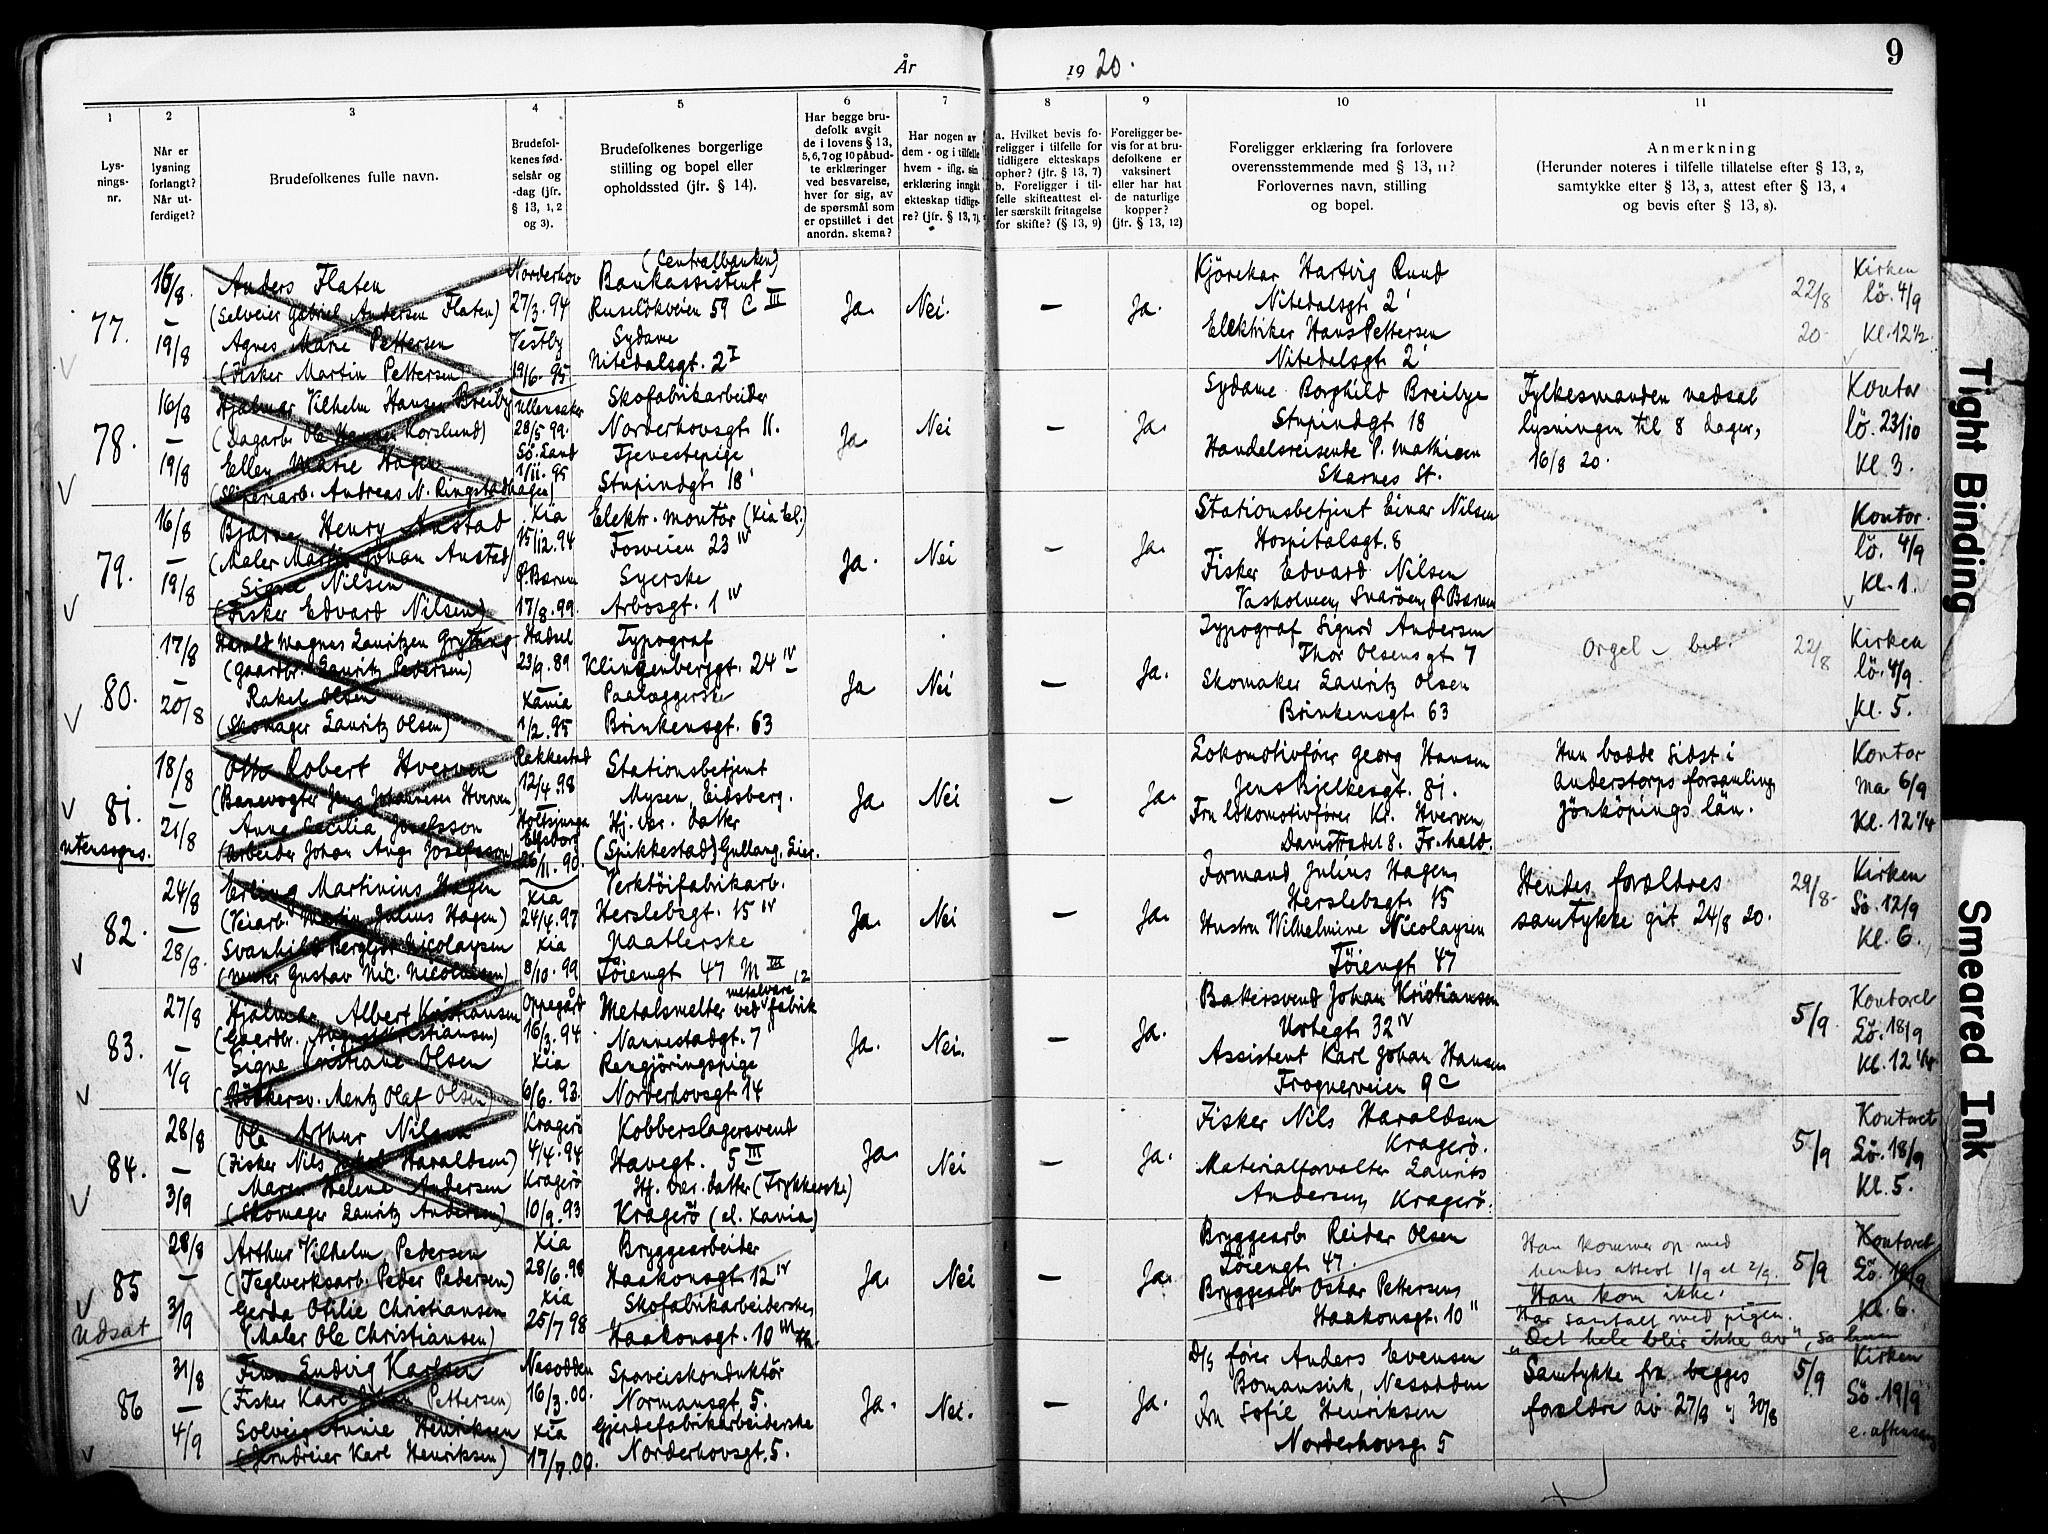 År 1920.
9
1
2
3
4
5
6
7
8
9
10
11
Lys-
nings-
nr.
Når er
lysning
forlangt?
Når ut-
ferdiget?
Brudefolkenes fulle navn.
Brudefol-
kenes fød-
selsår og
-dag (jfr.
§ 13, 1, 2
og 3).
Brudefolkenes borgerlige
stilling og bopel eller
opholdssted (jfr. § 14).
Har begge bru-
defolk avgit
de i lovens § 13,
5, 6, 7 og 10 påbud-
te erklæringer
ved besvarelse,
hver for sig, av
de spørsmål som
er opstillet i det
anordn. skema?
Har nogen av
dem - og i tilfelle
hvem - iflg. sin
erklæring inngått
ekteskap tidlige-
re? (jfr. § 13, 7).
a. Hvilket bevis fo-
religger i tilfelle for
tidligere ekteskaps
ophør? (jfr. § 13, 7)
b. Foreligger i til-
felle skifteattest el-
ler særskilt fritagelse
for skifte? (§ 13, 9)
Foreligger be-
vis for at bru-
defolkene er
vaksinert
eller har hat
de naturlige
kopper?
(jfr. § 13, 12)
Foreligger erklæring fra forlovere
overensstemmende med § 13, 11?
Forlovernes navn, stilling
og bopel.
Anmerkning
(Herunder noteres i tilfelle tillatelse efter § 13, 2,
samtykke efter § 13, 3, attest efter § 13, 4
og bevis efter § 13, 8).
77.
16/8
—
19/8
Anders Flaten
(Selveier Gabriel Andersen Flaten)
Agnes Marie Pettersen
(Fisker Martin Pettersen)
Norderhov
27/3. 94
Vestby
19/6. 95
(Centralbanken)
Bankassistent
Ruselökveien 59 C III
Sydame
Nitedalsgt. 2 I
Ja.
Nei.
—
Ja.
Kjörekar Hartvig Rund
Nitedalsgt. 2
Elektriker Hans Pettersen
Nitedalsgt. 2
22/8
20.
Kirken
lö. 4/9
Kl. 12 1/2
78.
16/8
—
19/8
Hjalmar Vilhelm Hansen Breiby
(Dagarb. Ole Hansen Korslund)
Ellen Marie Hagen
(Sliperiarb. Andreas N. Ringstadhagen)
Ullensaker
28/5 99.
Sö. Land
1/11. 95
Skofabrikarbeider
Norderhovsgt. 11.
Tjenestepige
Stupindgt. 18
Ja
Nei
—
Ja.
Sydame Borghild Breibye
Stupindgt. 18
Handelsreisende P. Mathisen
Skarnes St.
Fylkesmanden nedsat
lysningen til 8 dager,
16/8 20.
Kontor
lö. 23/10
Kl. 3.
79.
16/8
—
19/8
Bjarne Henry Anstad
(Maler Martin Johan Anstad)
Signe Nilsen
(Fisker Edvard Nilsen)
Xia
15/12. 94
Ö. Bærum
17/8. 99.
Elektr. montör (Xia El.)
Fosveien 23 IV
Syerske
Arbosgt. 1 IV
Ja.
Nei
—
Ja.
Stationsbetjent Einar Nilsen
Hospitalsgt. 8
Fisker Edvard Nilsen
Snaröen, Ö. Bærum
Kontor.
lö. 4/9
Kl. 1.
80.
17/8
—
20/8
Harald Magnes Lauritzen Gryting
(Gaardbr. Lauritz Pedersen)
Rakel Olsen
(Skomager Lauritz Olsen)
Hadsel
23/9. 89
Xania
1/2. 95
Typograf
Klingenberggt. 24 IV
Paalæggerske
Brinkensgt. 63
Ja
Nei
—
Ja.
Typograf Sigurd Andersen
Thor Olsensgt 7
Skomaker Lauritz Olsen
Brinkensgt. 63
Orgel - bet.
22/8
Kirken
lö. 4/9
Kl. 5.
81.
utensogns.
18/8
—
21/8
Otto Robert Hverven
(Banevogter Jens Johannesen Hverven)
Anna Cecilia Josefsson
(Arbeider Johan Aug. Josefsson)
Rakkestad
12/4. 98
Holtsjunga
Elfsborg
26/11. 90
Stationsbetjent
Mysen, Eidsberg.
Hj. vær. datter
(Spikkestad) Gullaug, Lier.
Ja.
Nei
—
Ja.
Lokomotivförer Georg Hansen
Jens Bjelkesgt. 81.
Fru lokomotivförer Kr. Hverven
Damstrædet 8. Fr.hald.
Hun bodde sidst i
Anderstorps forsamling,
Jönköpings län.
Kontor
ma. 6/9
Kl. 12 1/4
82.
24/8
—
28/8.
Erling Martinius Hagen
(Veiarb. Martin Julius Hagen)
Svanhild Bergljot Nicolaysen
(Murer Gustav Nic. Nicolaisen)
Xia
24/4. 97
Xia
8/10. 99
Verktöifabrikarb.
Herslebsgt. 15 IV
Naatlerske
Töiengt. 47 M III
Ja.
Nei
—
Ja.
Formand Julius Hagen,
Herslebsgt. 15
Hustru Wilhelmine Nicolaysen
Töiengt 47
Hendes forældres
samtykke git 24/8 20.
29/8.
Kirken
Sö. 12/9
Kl. 6.
83.
27/8
—
1/9
Hjalmar Albert Kristiansen
(Gaardbr. August Kristiansen)
Signe Kristiane Olsen
(Bödkersv. Mentz Olaf Olsen)
Oppegård
16/3. 94
Xia
6/6. 93.
Metalsmelter ved metalvarefabrik
Nannestadgt. 7
Rengjöringspige
Norderhovsgt 14
Ja.
Nei.
—
Ja.
Bakersvend Johan Kristiansen
Urtegt. 32 IV
Assistent Karl Johan Hansen
Frognerveien 9 C
5/9.
Kontoret
Lö. 18/9
Kl. 12 1/4
84.
28/8
—
3/9
Ole Arthur Nilsen
(Fisker Nils Jakob Haraldsen)
Maren Helene Andersen
(Skomager Lauritz Andersen)
Kragerö
4/4. 94
Kragerö
10/9. 93
Kobberslagersvend
Havegt. 5 III
Hj. vær. datter (Trykkerske)
Kragerö (el. Xania)
Ja.
Nei
—
Ja.
Fisker Nils Haraldsen
Kragerö.
Materialforvalter Laurits
Andersen, Kragerö.
5/9
Kontoret
Lö. 18/9
Kl. 5.
85
Udsat
28/8
—
3/9
Arthur Vilhelm Pedersen
(Teglverksarb. Peder Pedersen)
Gerda Otilie Christiansen
(Maler Ole Christiansen)
Xia
28/6. 98
Xia
25/7 98
Bryggearbeider
Haakonsgt. 12 IV
Skofabrikarbeiderske
Haakonsgt. 10 III
Ja.
Nei
—
Ja.
Bryggearb Reidar Olsen
Töiengt. 47.
Bryggearb. Oskar Pettersen
Haakonsgt. 10
Han kommer op med
hendes attest 1/9 el 2/9.
Han kom ikke.
Har samtalt med pigen.
"Det hele blir ikke av", sa hun
5/9
Kontoret
Lö. 18/9
Kl. 6.
86
31/8
—
4/9
Finn Ludvig Karlsen
(Fisker Karl Johan Pettersen)
Solveig Annie Henriksen
(Jerndreier Karl Henriksen)
Nesodden
16/3. 00.
Xia
17/7. 00.
Sporveiskonduktör
Normansgt. 5.
Gjerdefabrikarbeiderske
Norderhovsgt. 5.
Ja.
Nei.
—
Ja.
D/s förer Anders Evensen
Bomansvik, Nesodden
Fru Sofie Henriksen
Norderhovsg. 5
Samtykke fra begges
forældre av 27/8 og 30/8
5/9
Kirken
Sö. 19/9
e. aftensang
Tight Binding
Smeared Ink